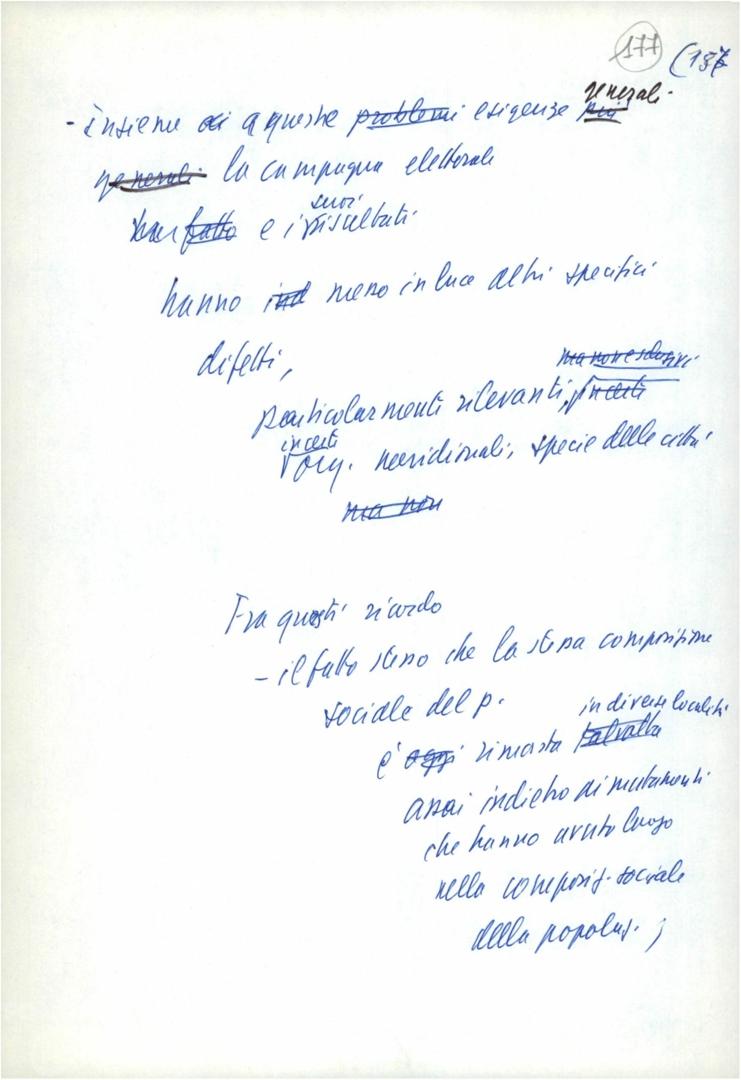 177 (137
- insieme ai a queste problemi esigenze più generali.
generali la campagna elettorale
fatto e i suoi risultati
hanno ind messo in luce altri specifici
difetti,
ma non esclusivi
particolarmente rilevanti, in certi
in certi
org. meridionali, specie delle città
ma non
Fra questi ricordo
- il fatto stesso che la stessa composizione
sociale del p. in diverse località
è oggi rimasta talvolta
assai indietro ai mutamenti
che hanno avuto luogo
nella composiz. sociale
della popolaz. ;